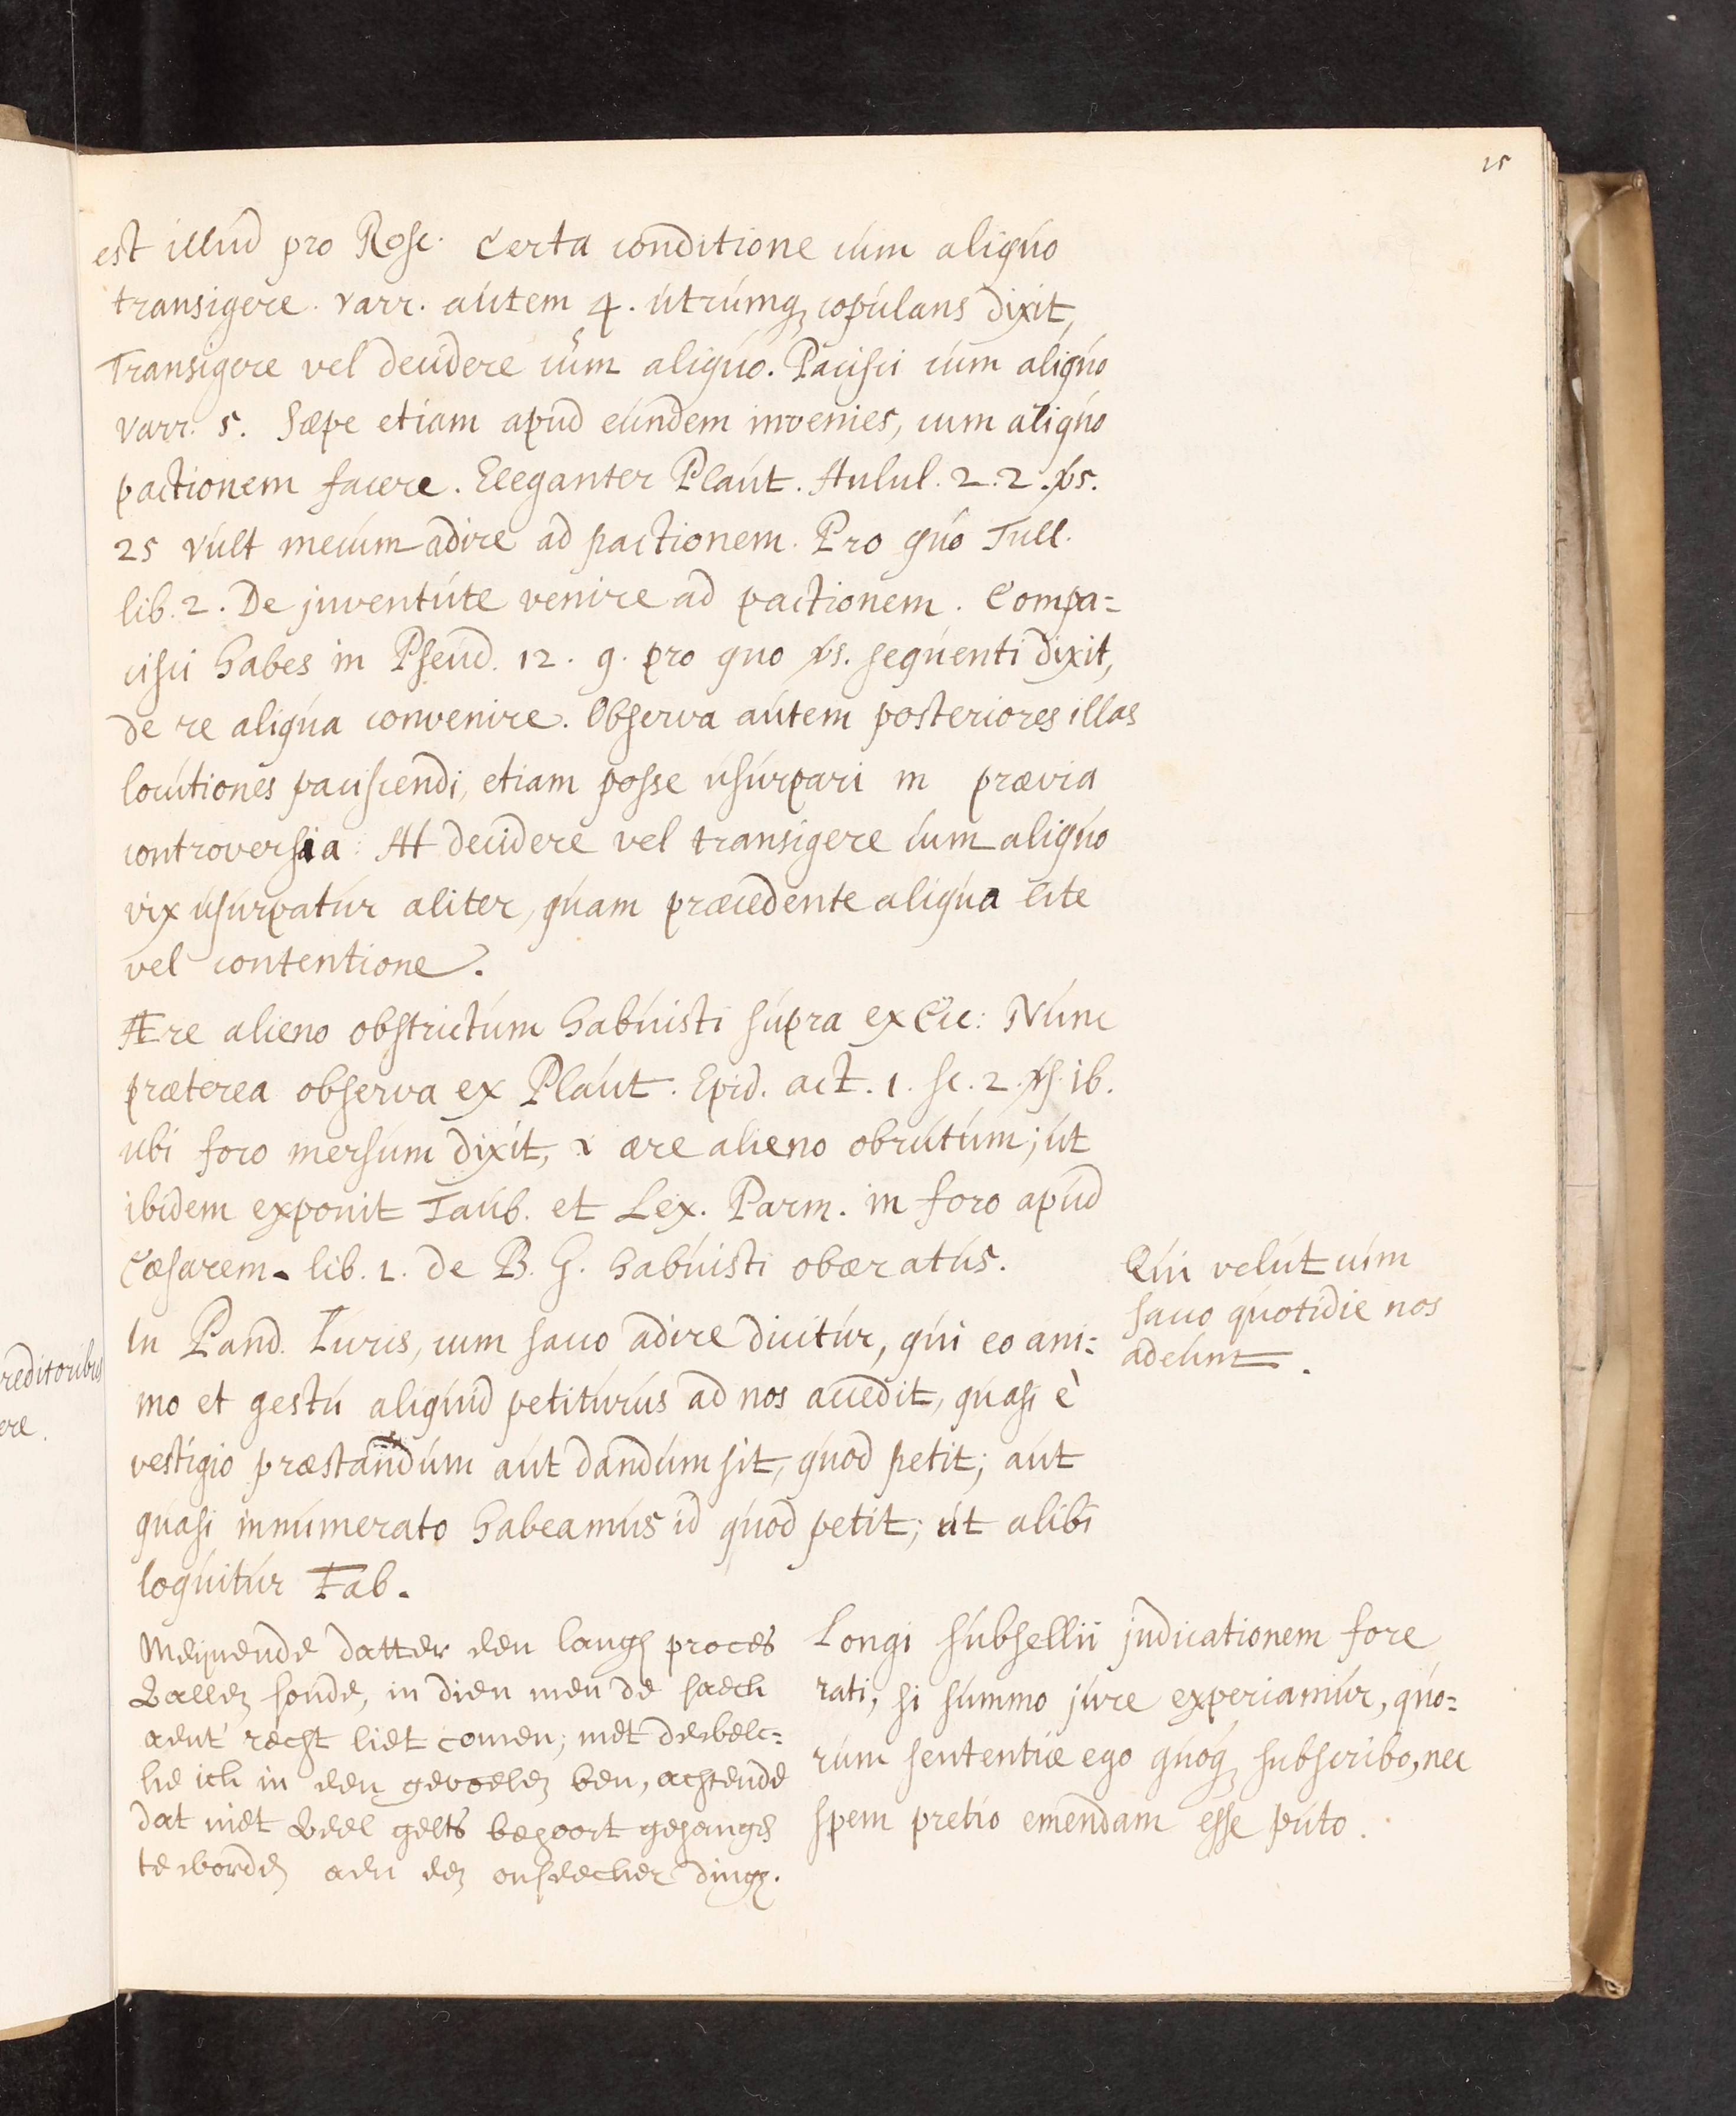 15
est illud pro Rosc. Certa conditione cum aliquo
transigere. Varr. autem 4. utrumq; copulans dixit,
Transigere vel decidere cum aliquo. Pacisci cum aliquo
Varr. 5. Sæpe etiam apud eundem invenies, cum aliquo
pactionem facere. Eleganter Plaut. Aulul. 2. 2. vs.
25 Vult mecum adire ad pactionem. Pro quo Tull.
lib. 2. De juventute venire ad pactionem. Compa=
cisci habes in Pseud. 12. 9. pro quo vs. sequenti dixit,
de re aliqua convenire. Observa autem posteriores illas
locutiones paciscendi, etiam posse usurpari in prævia
controversia: At decidere vel transigere cum aliquo
vix usurpatur aliter, quam præcedente aliqua lite
vel contentione.
Ære alieno obstrictum habuisti supra ex Cic: Nunc
præterea observa ex Plaut. Epid. act. 1. sc. 2. vs. 16.
ubi foro mersum dixit, ære alieno obrutum; ut
ibidem exponit Taub. et Lex. Parm. in foro apud
Cæsarem. lib. 1. de B. G. habuisti obæratus.
In Pand. Iuris, cum sacco adire dicitur, qui eo ani=
mo et gestu aliquid petiturus ad nos accedit, quasi è
vestigio præstandum aut dandum sit, quod petit; aut
quasi in numerato habeamus id quod petit; ut alibi
loquitur Fab.
Qui velut cum
sacco quotidie nos
adeunt.
reditoribus
ere.
Meijnende datter een langh proces
vallen soude, in dien men de saech
aent recht liet comen; met dewelc=
he ich in een gevoelen ben, achtende
dat niet veel gelts behoort gehangen
te worden aen een onseecher dingh.
Longi subsellii judicationem fore
rati, si summo jure experiamur, quo=
rum sententiæ ego quoq; subscribo, nec
spem pretio emendam esse puto.